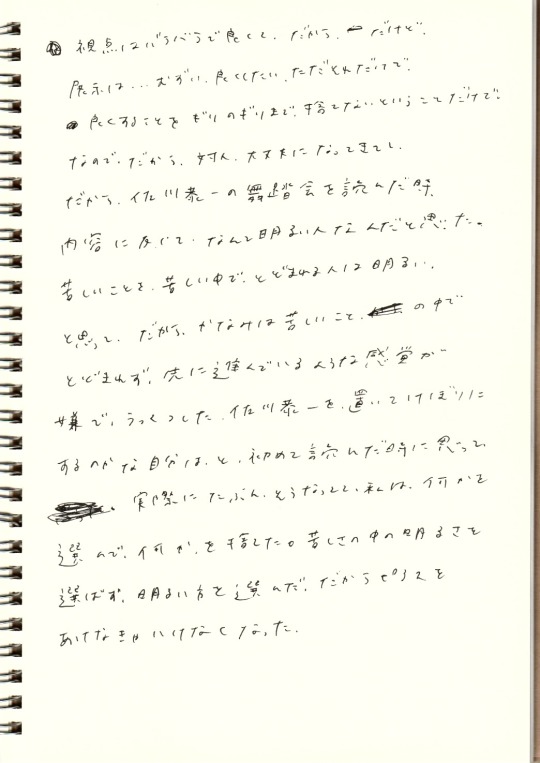 視点はバラバラで良くて、だから、だけど、
展示は…むずい、良くしたい、ただそれだけで、
良くすることをギリのギリまで、捨てないということだけで、
なので、だから、対人、大丈夫になってきてし、
だから、佐川恭一の舞踏会を読んだ時、
内容に反して、なんて明るい人なんだと思った。
苦しいことを、苦しい中で、とどまれる人は明るい、
と思って、だから、かなみは苦しいこと、の中で
とどまれず、先に進んでいるような感覚が
嫌で、うっくつした、佐川恭一を、置いてけぼりに
するのかな自分は、と、初めて読んだ時に思って、
実際にたぶん、そうなって、私は、何かを
選んで、何か、を捨てた。苦しさの中の明るさを
選ばず、明るい方を選んだ、だからピアスを
あけなきゃいけなくなった。